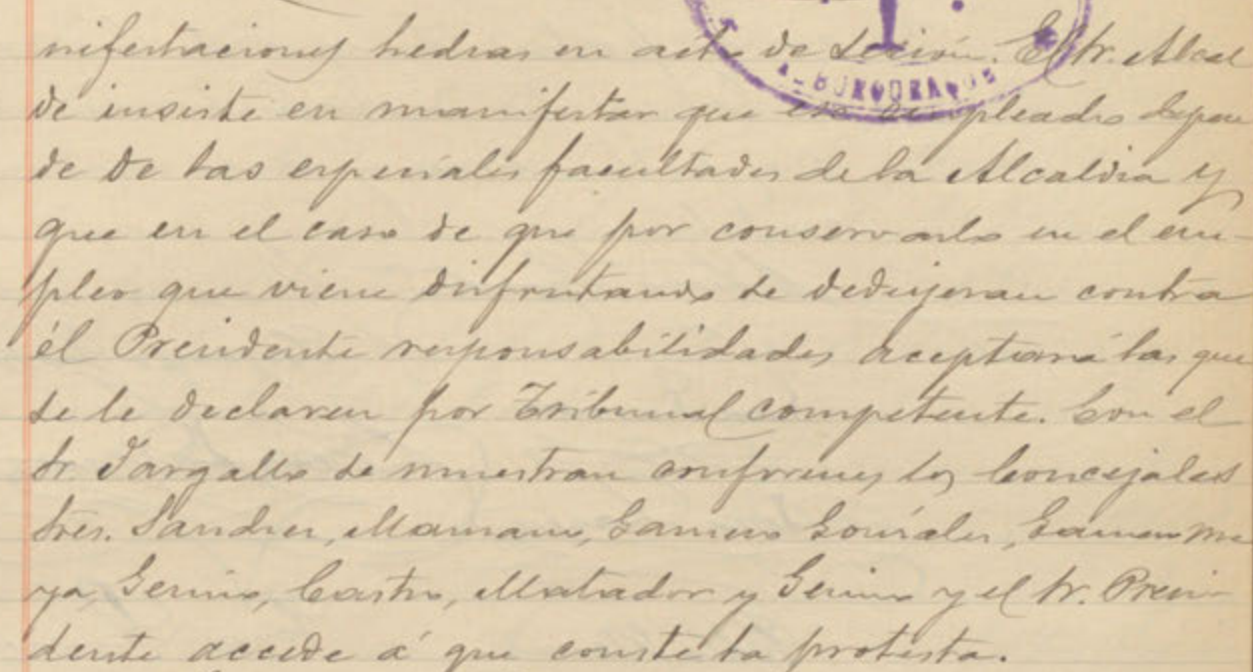 nifestaciones hechas en acto de sesión. El Sr. Alcal
ALBURQUERQUE
de insiste en manifestar que ese empleado depen
de de las especiales facultades de la Alcaldia y
que en el caso de que por conservarlo en el em-
pleo que viene disfrutando se dedujeran contra
él Presidente responsabilidades aceptará las que
se le declaren por Tribunal competente. Con el
Sr. Gargallo se muestran conformes los Concejales
Sres. Sandes, Mamano, Gamero González, Gamero Ma
ya, Castro, Matador y y el Sr. Presi-
dente accede á que conste la protesta.